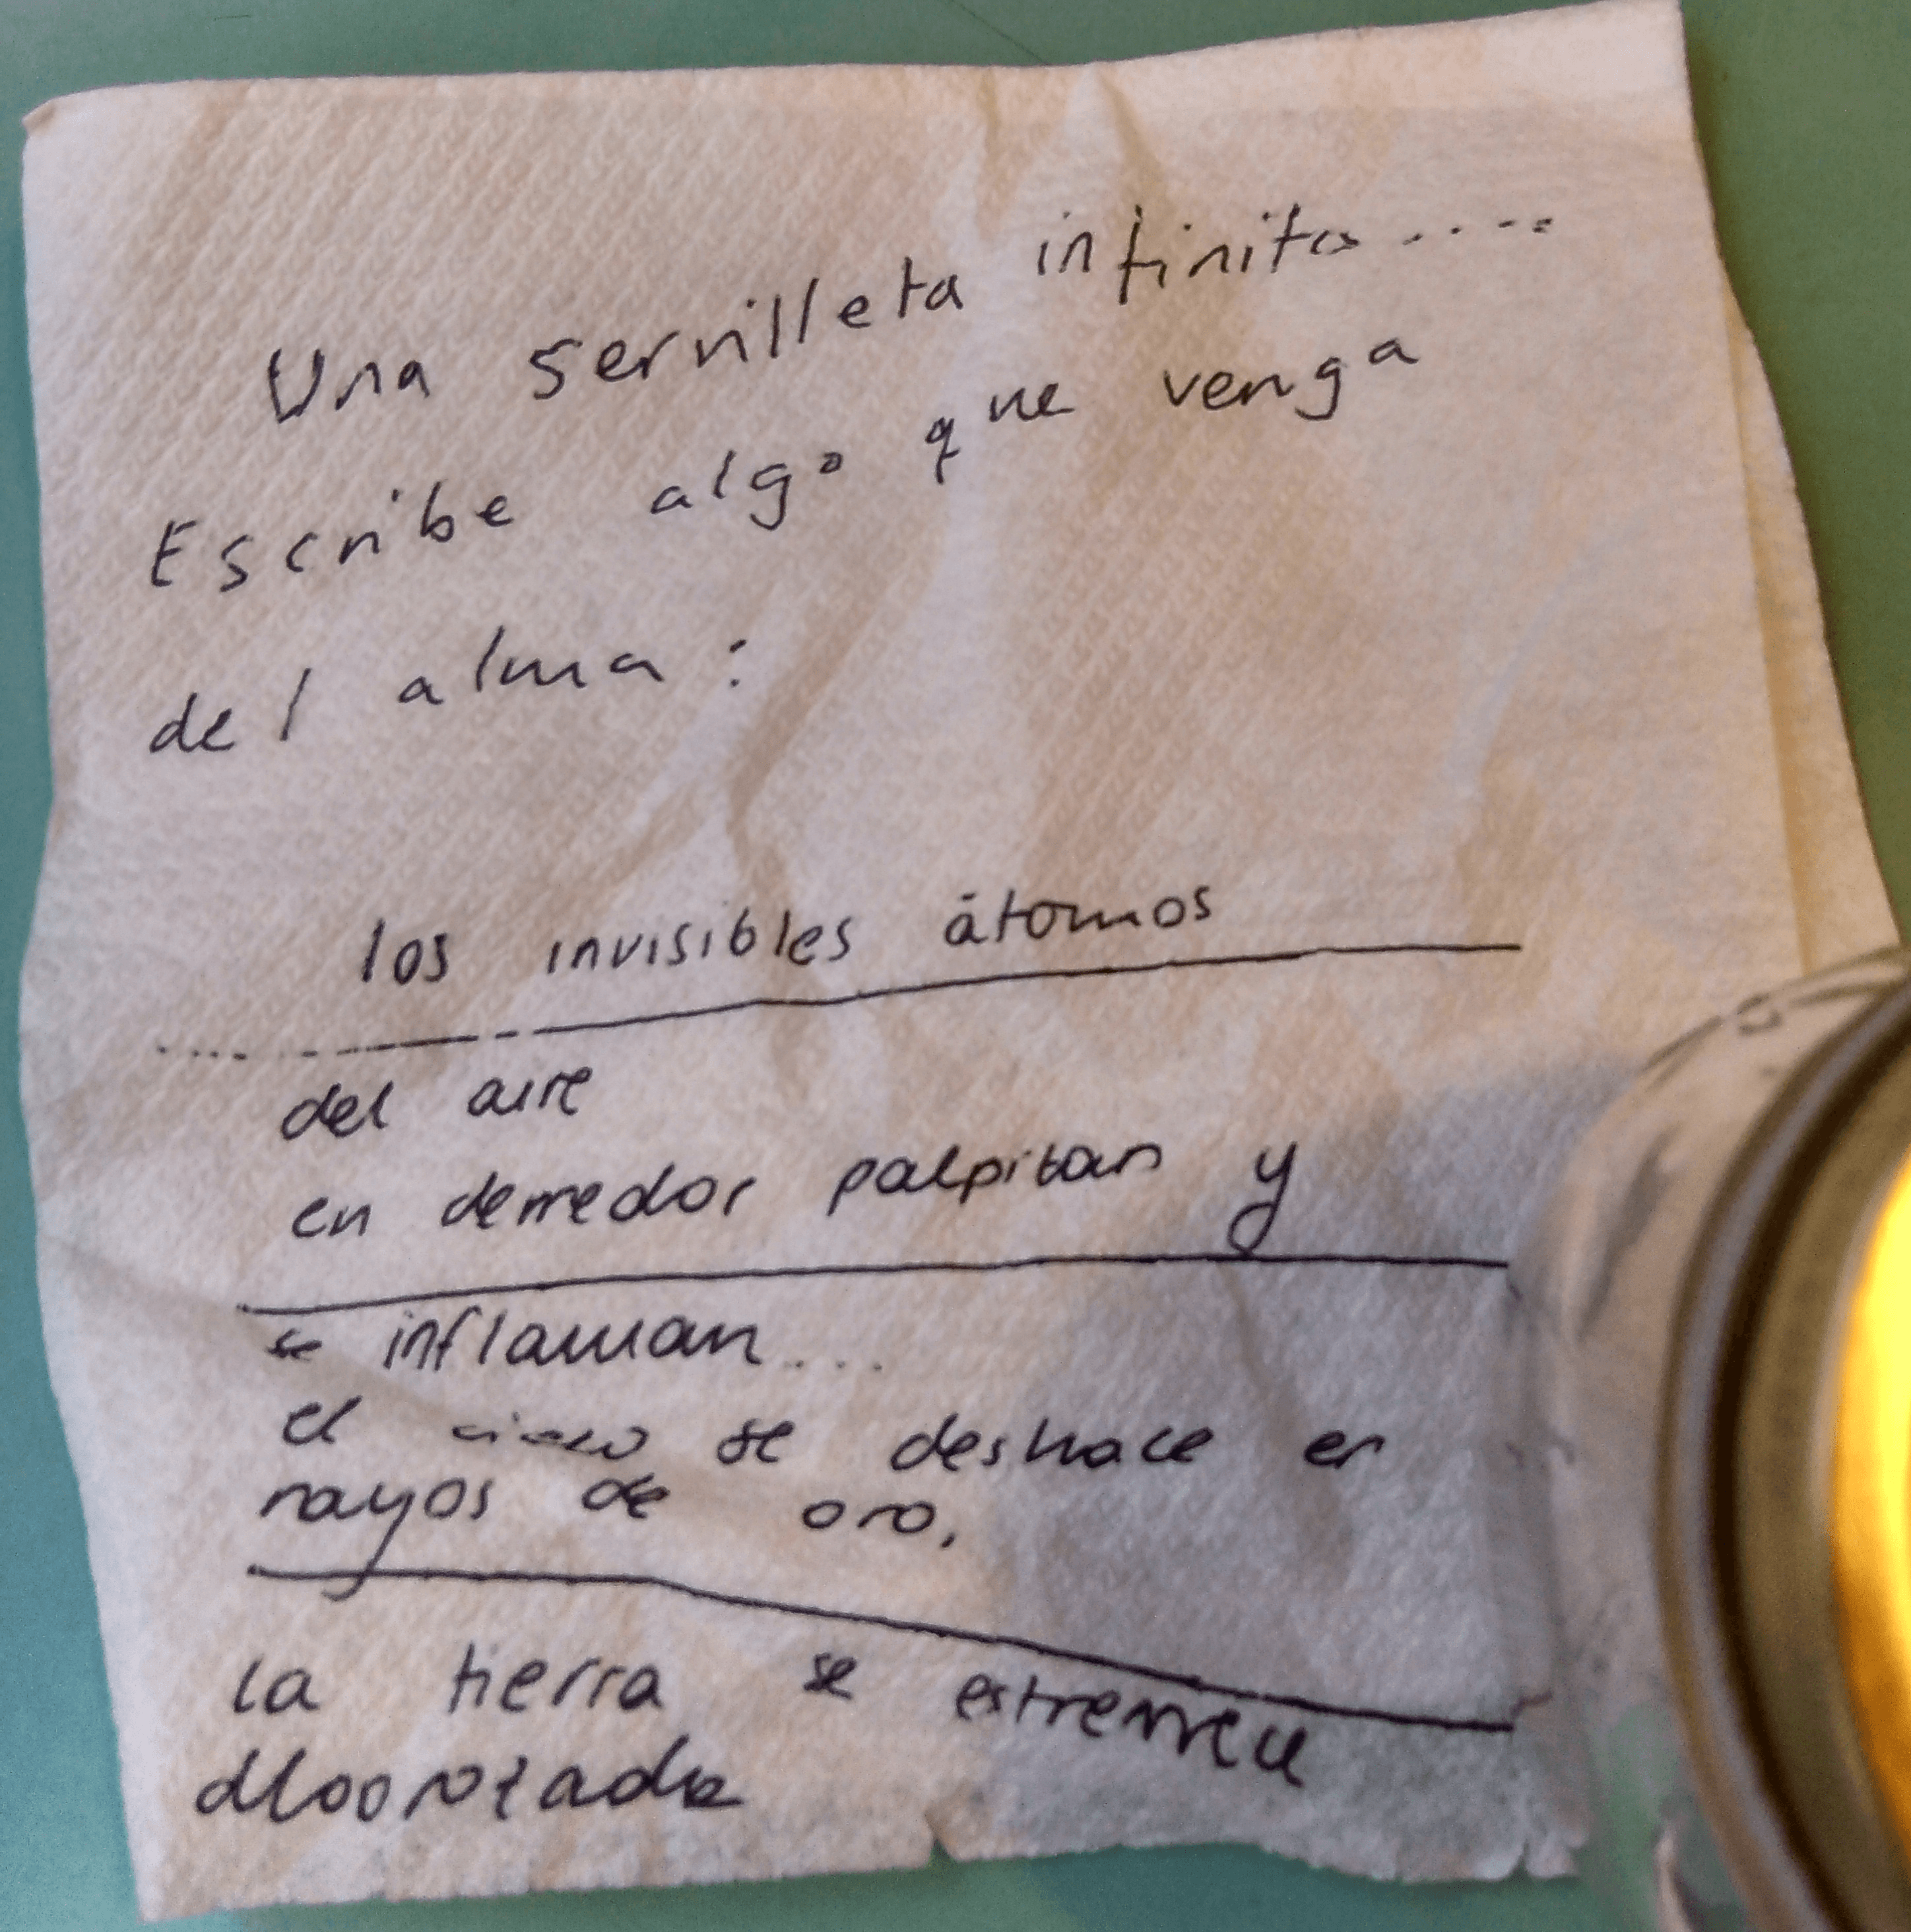 Una servilleta infinita.....
Escribe algo que venga
del alma:
los invisibles átomos
del aire
en derredor palpitan y
se inflaman....
el se deshace en
rayos de oro,
la tierra se estremece